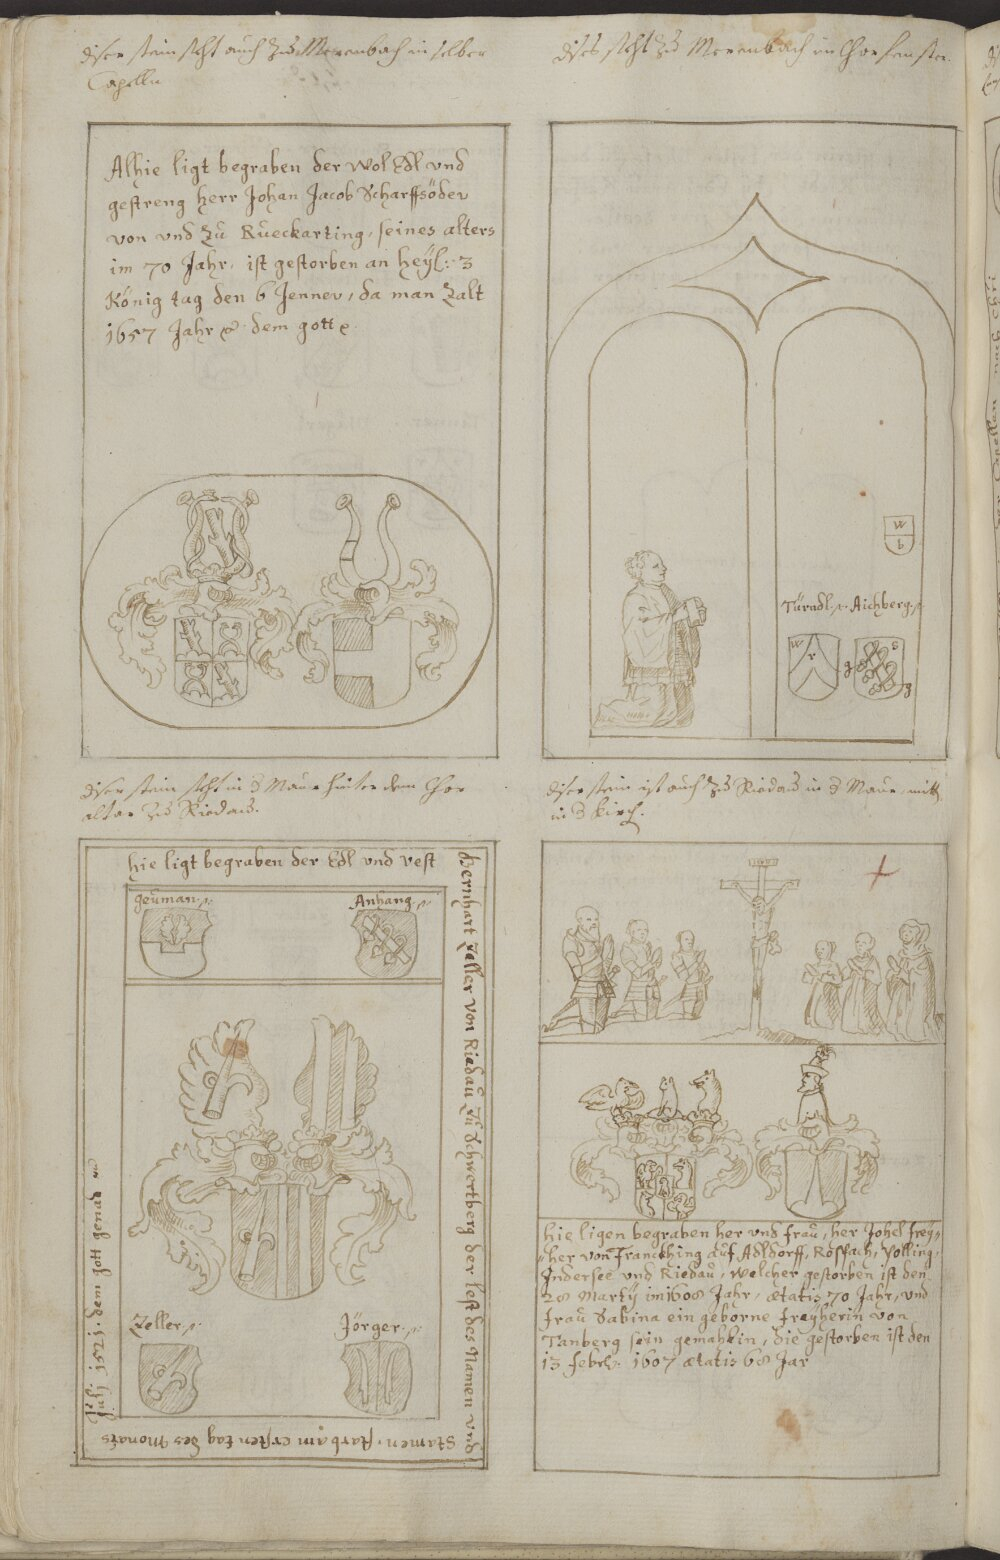 diser stain steht auch zu Merenbach in selber
Capelln
Alhie ligt begraben der wol Edl vnd
gestreng herr Johan Jacob Scharffsöder
von vnd zu Rueckarting, seines alters
im 70 Jahr, ist gestorben an heyl: 3
König tag den 6 Jenner, da man Zalt
1657 Jahr dem gott
dises steht zu Merenbach im Chorfenster.
w
b
Türndl. Aichberg.
w
r
diser stain steht in d Maur hinter dem Chor
altar zu Riedau.
hie ligt begraben der Edl vnd vest
Bernhart Zeller von Riedau Zu Schwertberg der lest des Namen vnd
Stamen, starb am ersten tag des Monats
Julj 1521. dem gott genad
geüman.
Anhang.
Zeller.
Jörger.
diser stain ist auch zu Riedau in d Maur, mitt
in d kirch.
hie ligen begraben her vnd frau, her Johel frey=
=her von Francking auf Adldorff, Rossbach, Polling,
Indersee vnd Riedau, welcher gestorben ist den
28 Martij im 1608 Jahr, ætatis 70 Jahr, vnd
frau Sabina ein geborne freyherin von
Tanberg sein gemahlin, die gestorben ist den
13 febr: 1607 ætatis 68 Jar